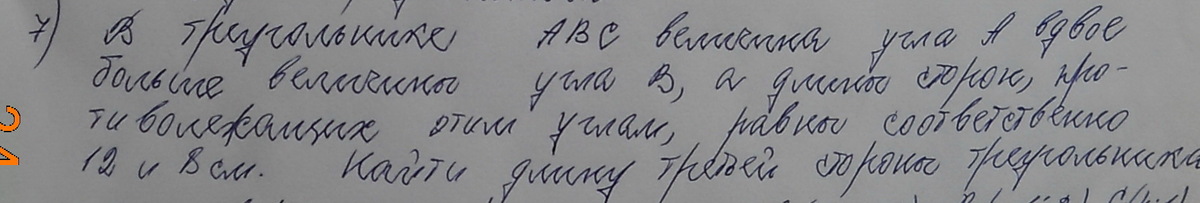 7) В треугольнике ABC величина угла A вдвое
больше величины угла B, а длины сторон, про-
тиволежащих этим углам, равны соответственно
12 и 8 см. Найти длину третьей стороны треугольника